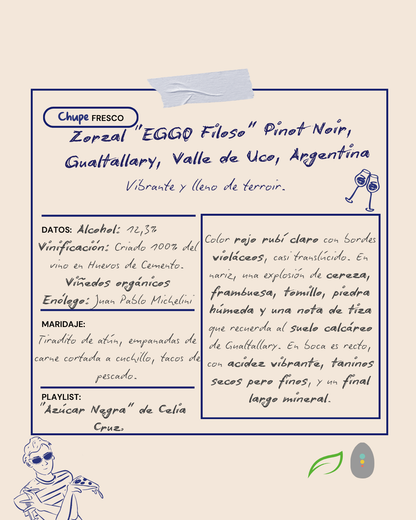 Chupe FRESCO
Zorzal "EGGO Filoso" Pinot Noir,
Gualtallary, Valle de Uco, Argentina
Vibrante y lleno de terroir.
DATOS: Alcohol: 12,5%
Vinificación: Criado 100% del
vino en Huevos de Cemento.
Viñedos orgánicos
Enólogo: Juan Pablo Michelini
MARIDAJE:
Tiradito de atún, empanadas de
carne cortada a cuchillo, tacos de
pescado.
PLAYLIST:
"Azúcar Negra" de Celia
Cruz.
Color rojo rubí claro con bordes
violáceos, casi translúcido. En
nariz, una explosión de cereza,
frambuesa, tomillo, piedra
húmeda y una nota de tiza
que recuerda al suelo calcáreo
de Gualtallary. En boca es recto,
con acidez vibrante, taninos
secos pero finos, y un final
largo mineral.